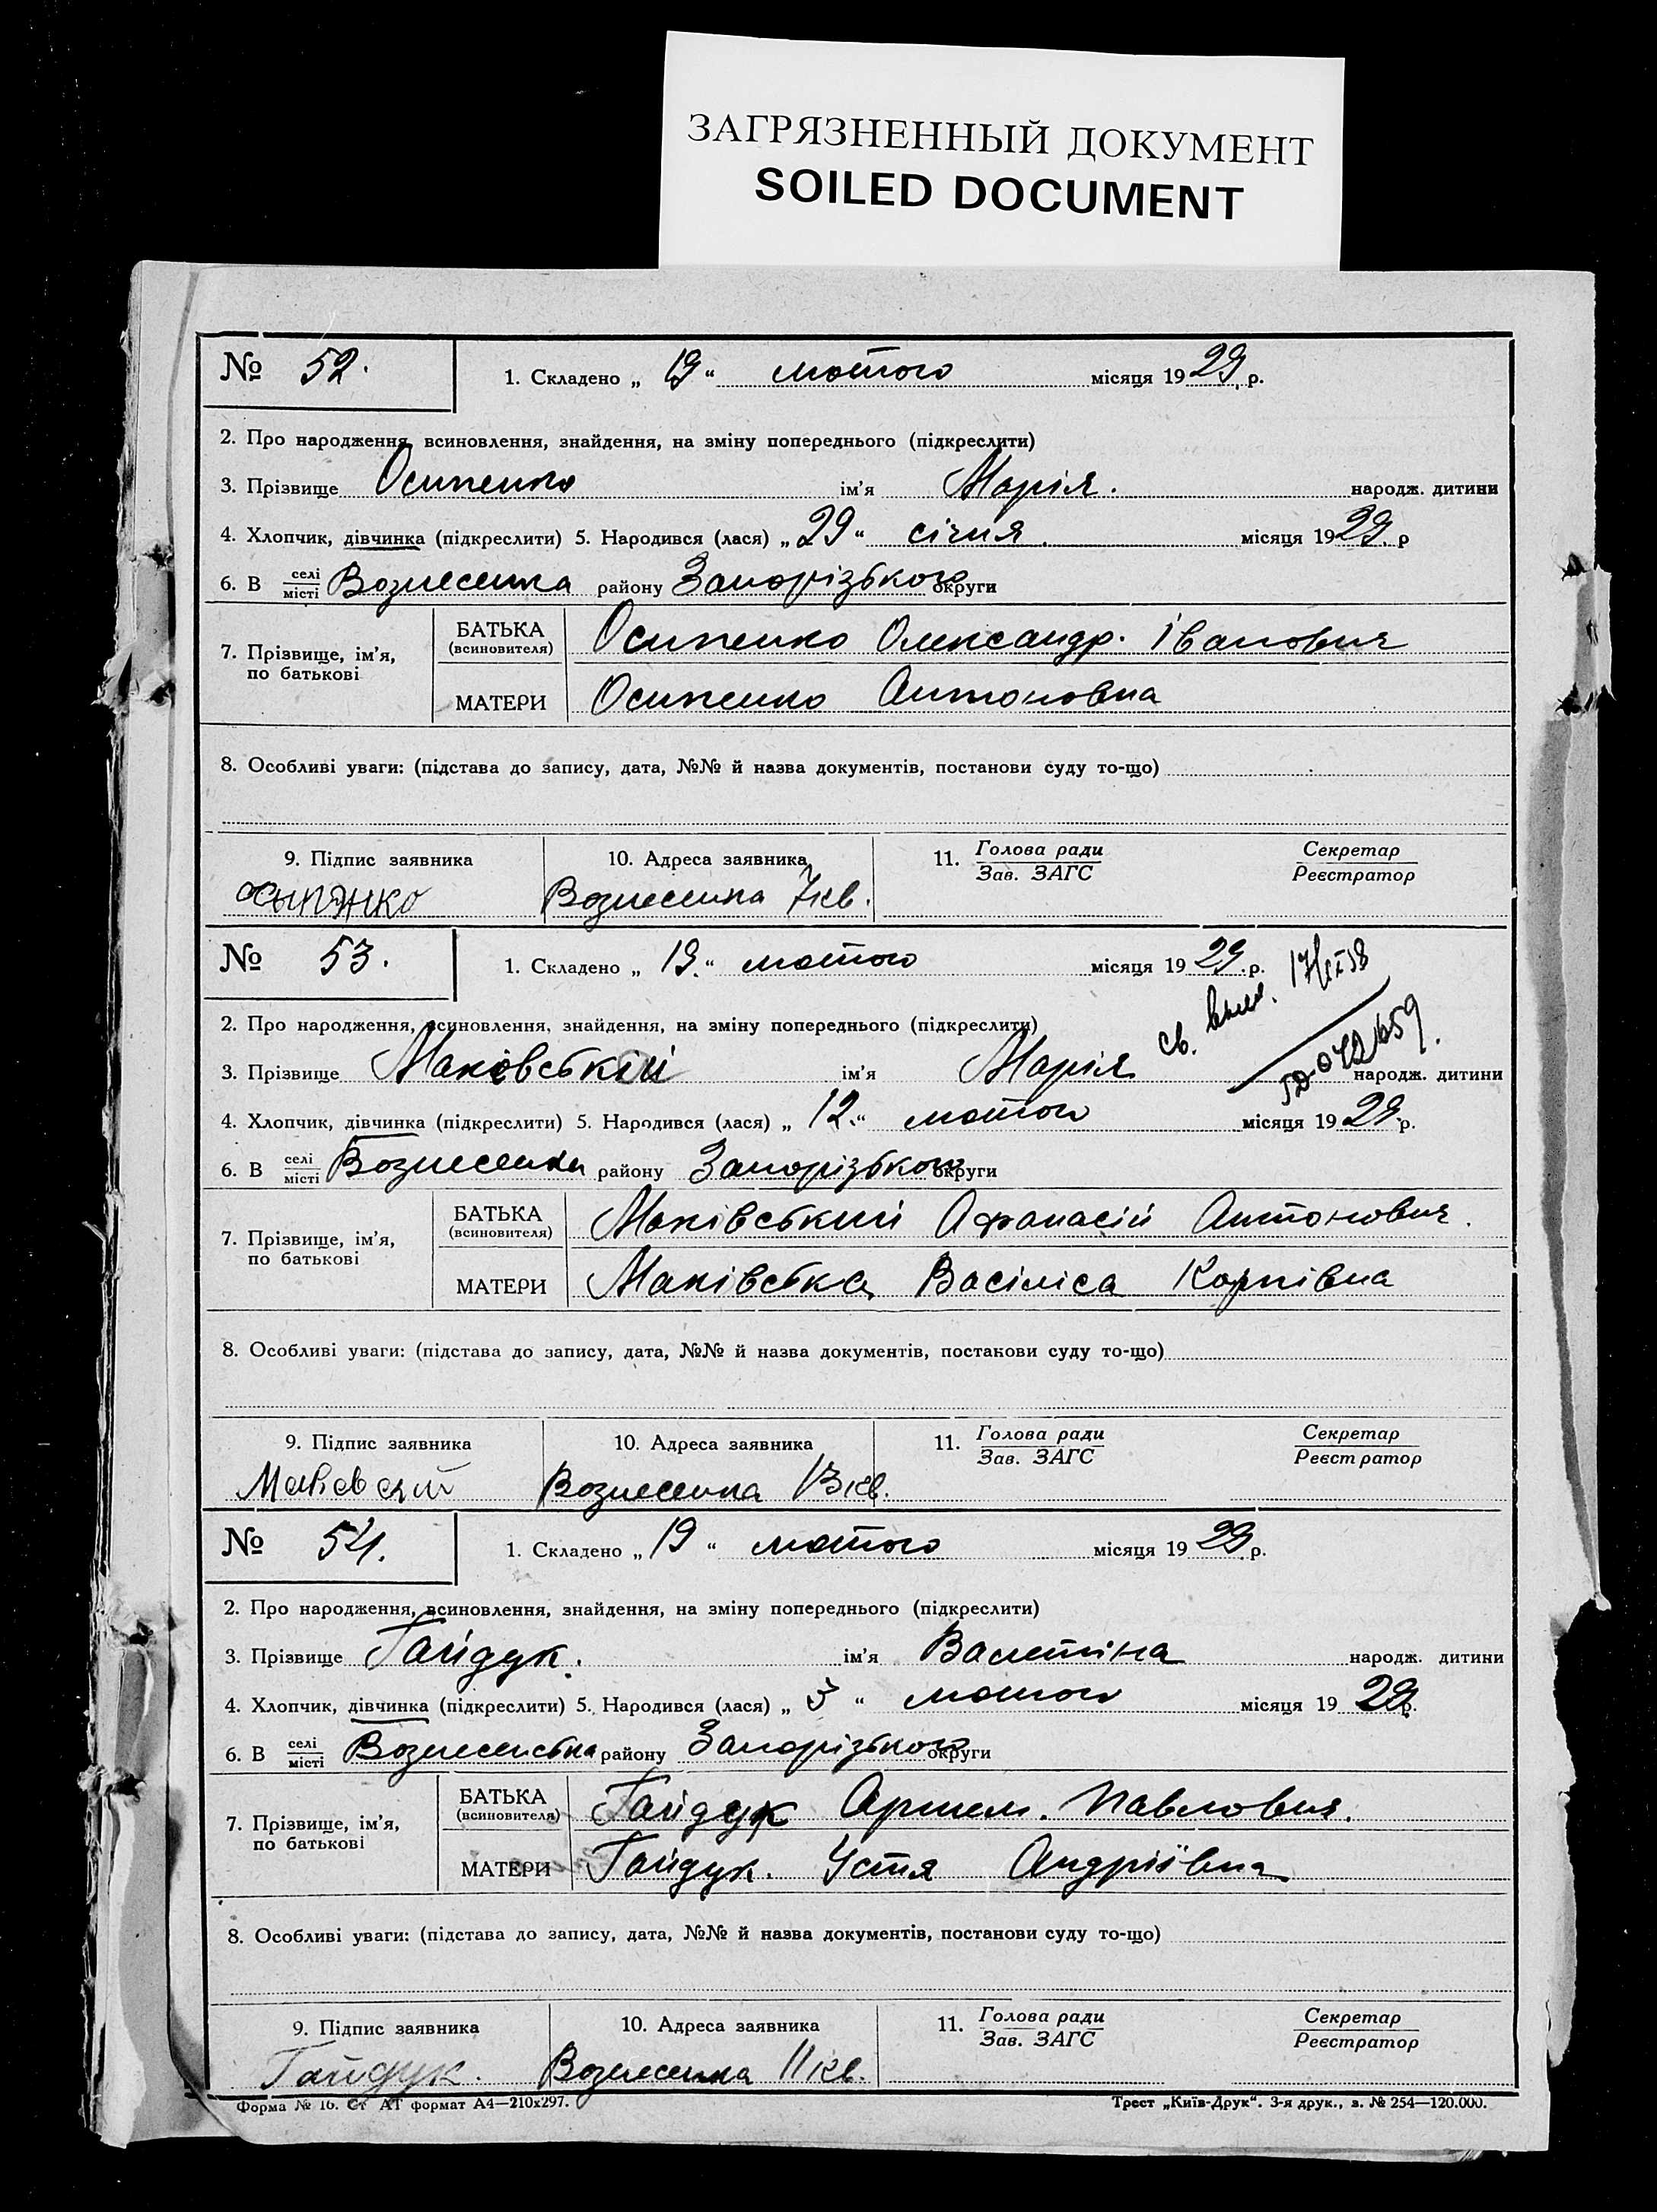 ЗАГРЯЗНЕННЫЙ ДОКУМЕНТ
SOILED DOCUMENT
№ 52. 1. Складено „ 19 “ лютого місяця 1929 р.
2. Про народження, всиновлення, знайдення, на зміну попереднього (підкреслити)
3. Прізвище Осипенко ім’я Марія. народж. дитини
4. Хлопчик, дівчинка (підкреслити) 5. Народився (лася) „ 29 “ січня. місяця 1929. р
6. В селі/місті Вознесенка району Запорізького округи
7. Прізвище, ім’я, по батькові
БАТЬКА (всиновителя) Осипенко Олександр. Іванович
МАТЕРИ Осипенко Антоновна
8. Особливі уваги: (підстава до запису, дата, №№ й назва документів, постанови суду то-що)
9. Підпис заявника 10. Адреса заявника 11. Голова ради/Зав. ЗАГС Секретар/Реєстратор
Вознесенка 7 кв.
№ 53. 1. Складено „ 19. “ лютого місяця 1929. р.
св. выд. 17/IX 58
2. Про народження, всиновлення, знайдення, на зміну попереднього (підкреслити)
3. Прізвище Маківський ім’я Марія народж. дитини
4. Хлопчик, дівчинка (підкреслити) 5. Народився (лася) „ 12. “ лютого місяця 1929. р.
6. В селі/місті Вознесенка району Запорізького округи
7. Прізвище, ім’я, по батькові
БАТЬКА (всиновителя) Маківський Афанасій Антонович.
МАТЕРИ Маківська Васіліса Карпівна
8. Особливі уваги: (підстава до запису, дата, №№ й назва документів, постанови суду то-що)
9. Підпис заявника 10. Адреса заявника 11. Голова ради/Зав. ЗАГС Секретар/Реєстратор
Вознесенка 13 кв.
№ 54. 1. Складено „ 19 “ лютого місяця 1929. р.
2. Про народження, всиновлення, знайдення, на зміну попереднього (підкреслити)
3. Прізвище Гайдук. ім’я Валетіна народж. дитини
4. Хлопчик, дівчинка (підкреслити) 5. Народився (лася) „ “ лютого місяця 1929 р.
6. В селі/місті Вознесенська району Запорізького округи
7. Прізвище, ім’я, по батькові
БАТЬКА (всиновителя) Гайдук Артем. Павлович.
МАТЕРИ Гайдук. Устя Андріївна
8. Особливі уваги: (підстава до запису, дата, №№ й назва документів, постанови суду то-що)
9. Підпис заявника 10. Адреса заявника 11. Голова ради/Зав. ЗАГС Секретар/Реєстратор
Гайдук. Вознесенка 11 кв.
Форма № 16. Ст АТ формат А4—210х297. Трест „Київ-Друк“. 3-я друк., з. № 254—120.000.